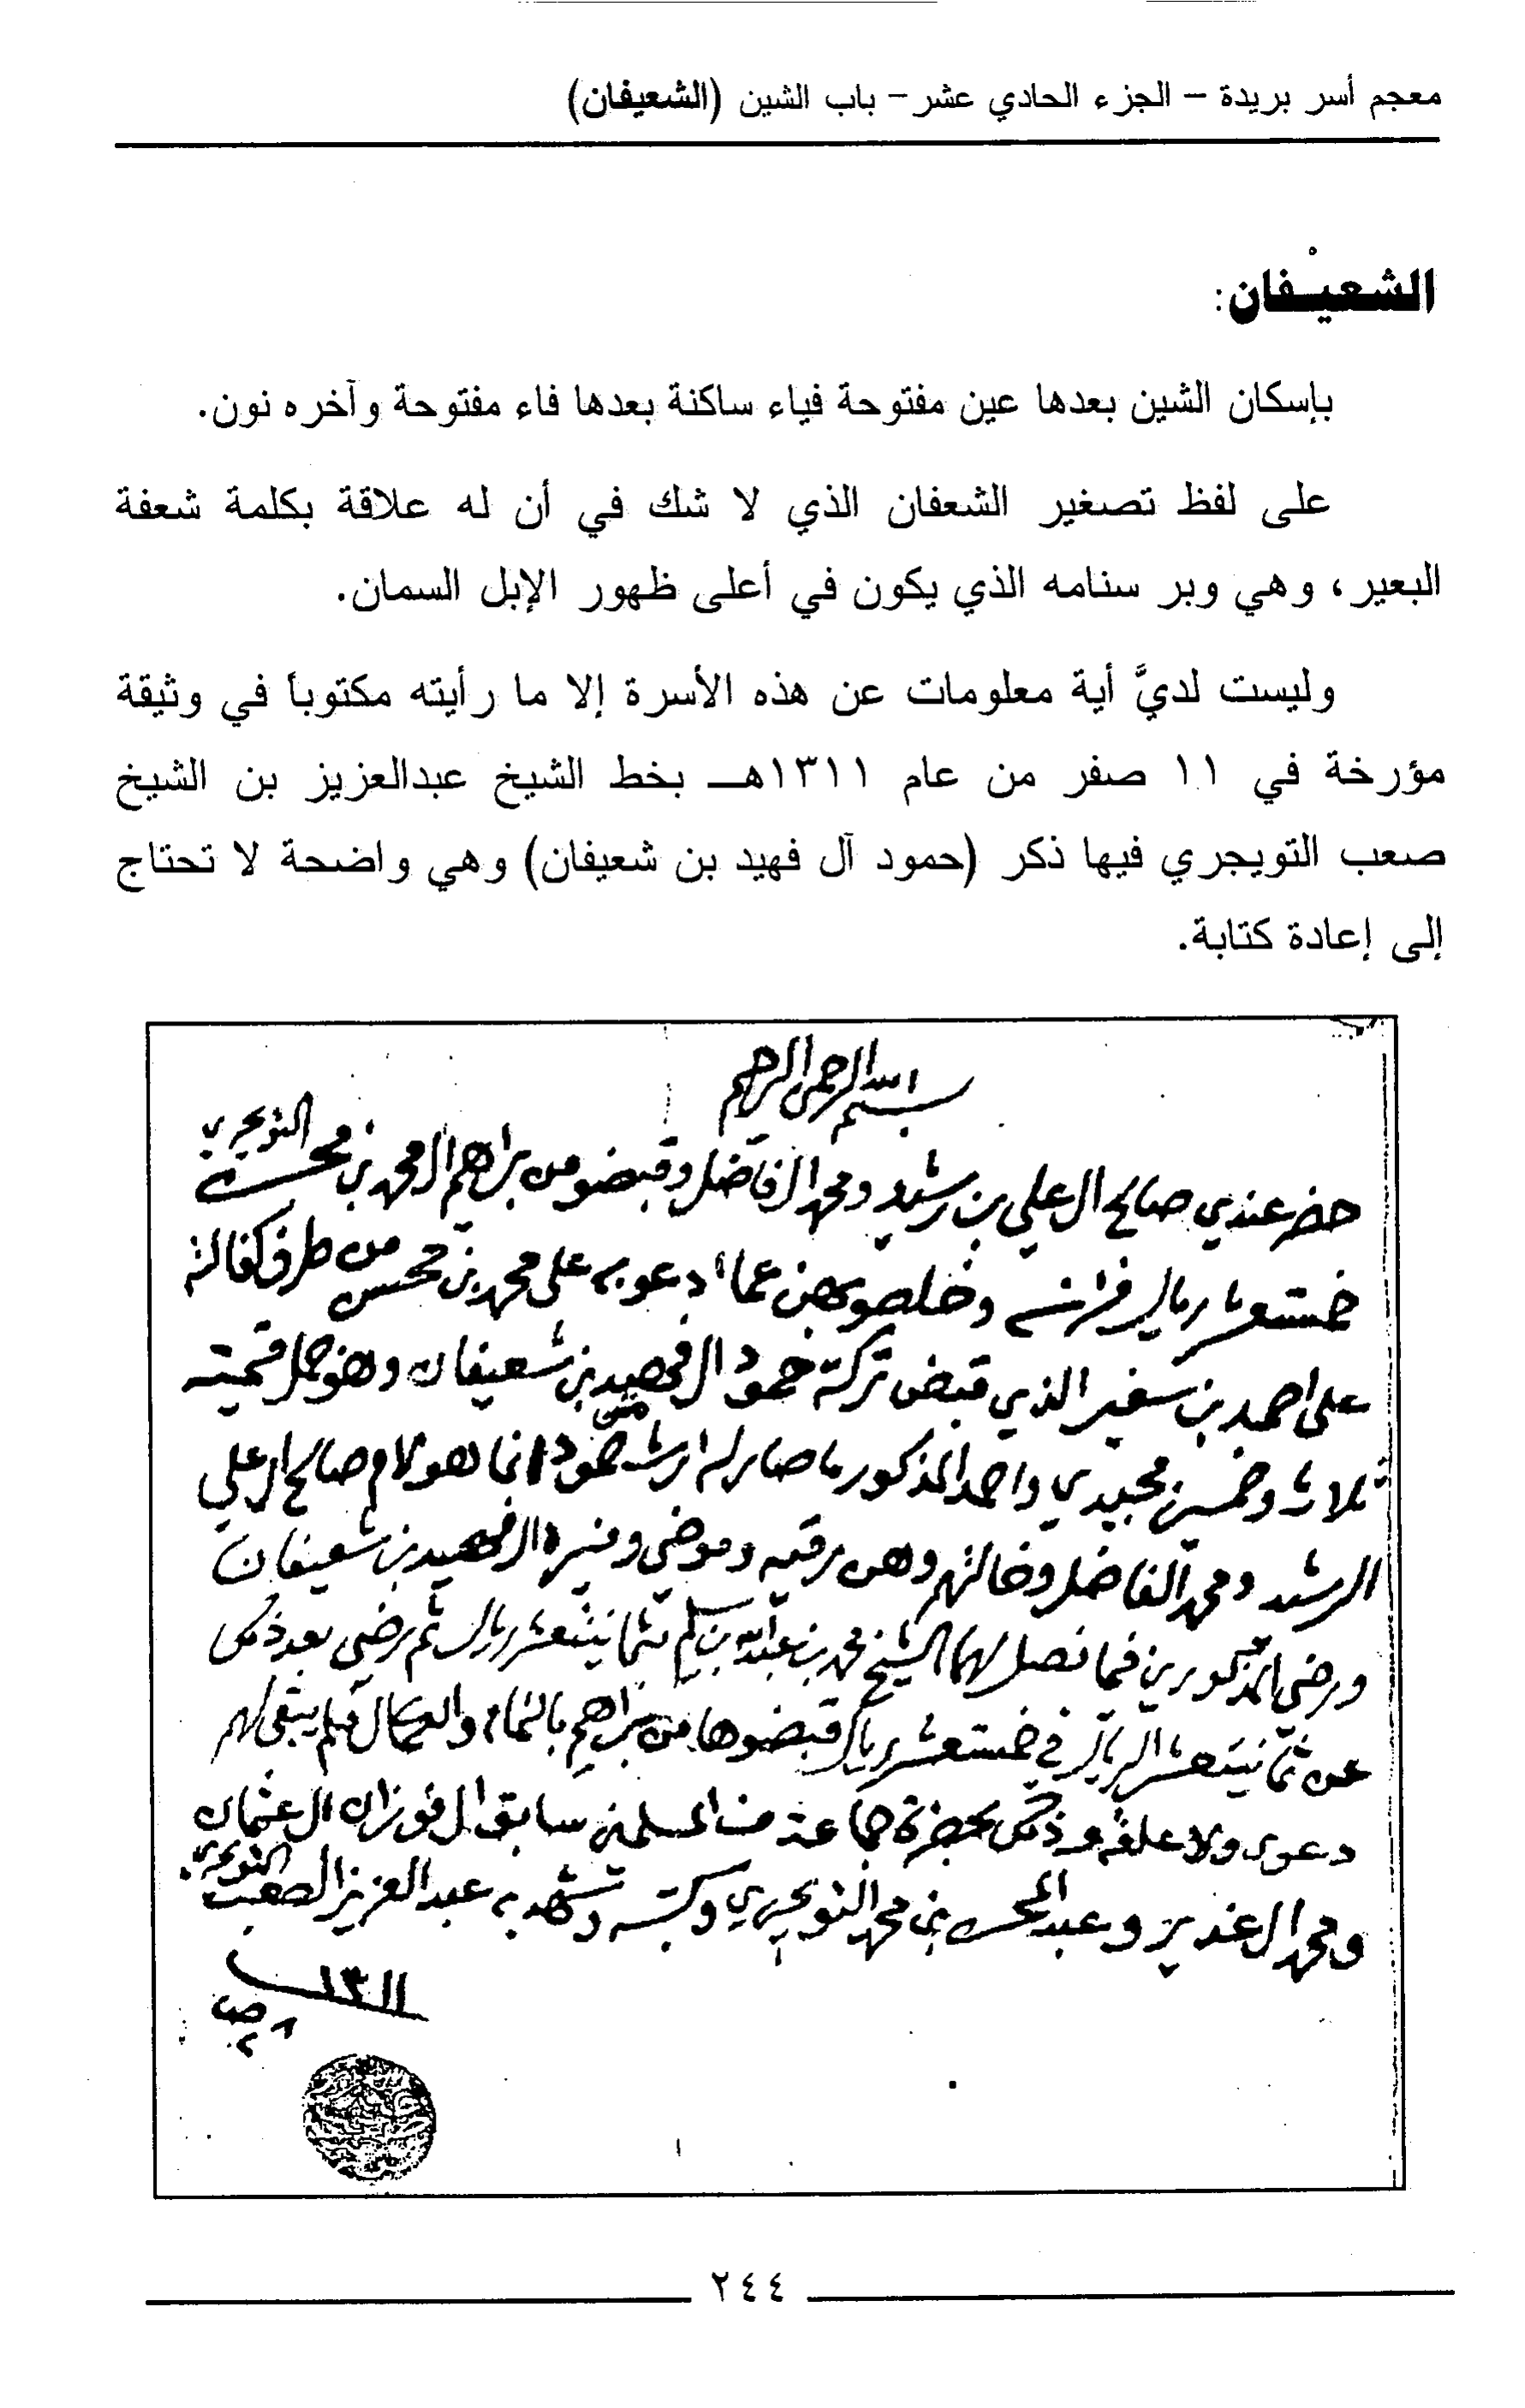 معجم أسر بريدة – الجزء الحادي عشر – باب الشين (الشعيفان)
الشعيْفان:
بإسكان الشين بعدها عين مفتوحة فياء ساكنة بعدها فاء مفتوحة وآخره نون.
على لفظ تصغير الشعفان الذي لا شك في أن له علاقة بكلمة شعفة
البعير، وهي وبر سنامه الذي يكون في أعلى ظهور الإبل السمان.
وليست لديَّ أية معلومات عن هذه الأسرة إلا ما رأيته مكتوباً في وثيقة
مؤرخة في ١١ صفر من عام ١٣١١هـ بخط الشيخ عبدالعزيز بن الشيخ
صعب التويجري فيها ذكر (حمود آل فهيد بن شعيفان) وهي واضحة لا تحتاج
إلى إعادة كتابة.
بسم الله الرحمن الرحيم
حضر عندي صالح ال علي بن رشيد ومحمد ال فاضل وقبضو من براهيم ال محمد بن محسن التويجري
خمستعشر ريال فرانسه وخلصو بهن عما ادعو به على محمد بن محسن من طرف كفالته
على احمد بن سفير الذي قبض تركة حمود ال فهيد بن شعيفان وهو جمل قيمته
ثلاث وخمسين مجيدي واحمد المذكور ما صار له ارث من حمود انما هو لام صالح ال علي
الرشيد ومحمد الفاضل وخالتهم وهن رقيه وموضي ومنيره ال فهيد بن شعيفان
ورضى المذكورين فيما فصل لهما الشيخ محمد بن عبدالله بن سليم ثمانيتعشر ريال ثم رضى بعد ذلك
عن ثمانيتعشر الريال في خمستعشر ريال قبضوها من براهيم بالتمام والكمال فلم يبقى لهم
دعوى ولا علقه وذلك بحضرة جماعة من المسلمين سابق ال فوزان ال عثمان
ومحمد ال غدير وعبد المحسن بن محمد التويجري وكتبه وشهد به عبد العزيز الصعب التويجري
١٣١١
ص
٢٤٤